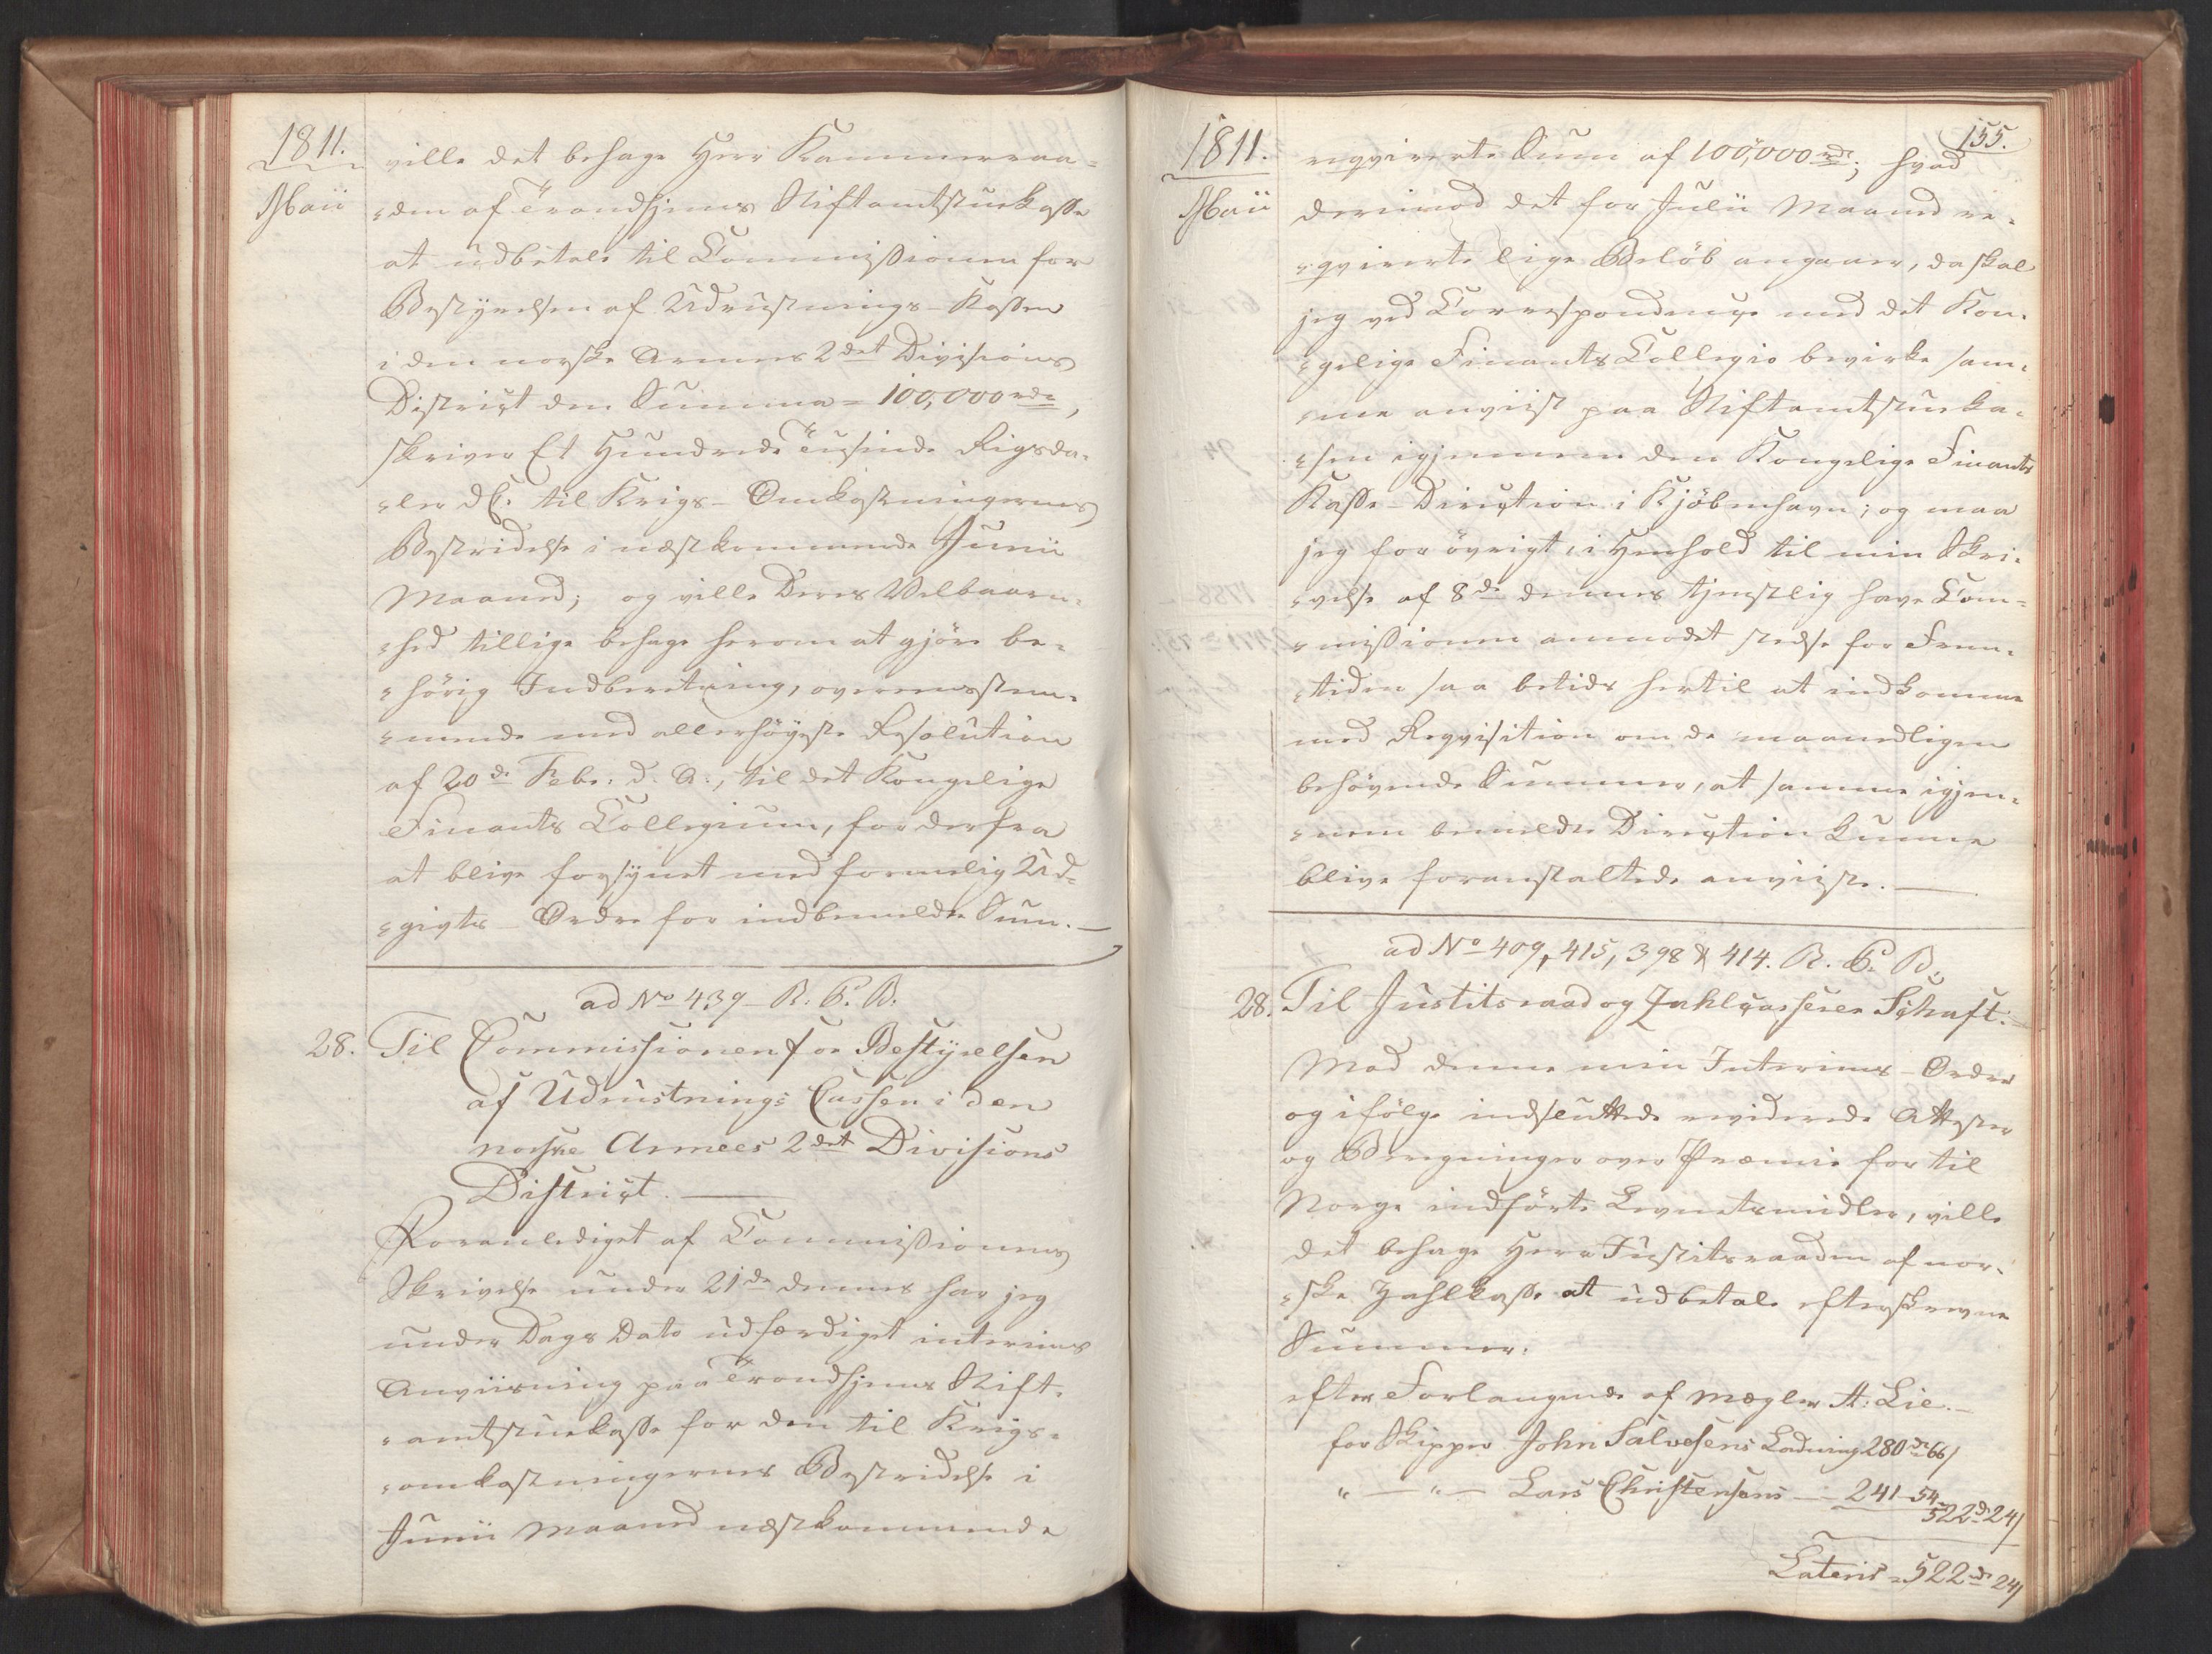 1811.
Maii
ville det behage Herr Kammerraa-
-den af Trondhjems Stiftamtstuekasse
at udbetale til Commissionen for
Bestyrelsen af Udrustnings-Kassen
i den norske Armees 2det Divisions
District den Summa = 100,000 rdr,
skriver Et Hundrede Tusinde Rigsda-
-ler dC. til Krigs-Omkostningernes
Bestridelse i næstkommende Junii
Maaned; og ville Deres Velbaaren-
-hed tillige behage herom at gjöre be-
-hörig Indberetning, overeensstem-
-mende med allerhöyeste Resolution
af 20de Febr: d. A:, til det Kongelige
Finants Collegium, for derfra
at blive forsynet med formelig Ud-
-givts-Ordre for indbemeldte Sum.
ad No 439 R. C. B.
28. Til Commissionen for Bestyrelsen
af Udrustnings Cassen i den
norske Armees 2det Divisions
District.
Foranlediget af Commissionens
Skrivelse under 21de dennes har jeg
under Dags Dato udfærdiget interims
Anviisning paa Trondhjems Stift-
-amtstuekasse for den til Krigs-
-omkostningernes Bestridelse i
Junii Maaned næstkommende
1811.
Maii
155.
reqvirerte Sum af 100,000 rdr; hvad
derimod det for Julii Maaned re-
-qvirerte lige Belöb angaaer, da skal
jeg ved Correspondence med det Kon-
-gelige Finants Collegio bevirke sam-
-me anviist paa Stiftamtstueka-
-sen igjennem den Kongelige Finants
Kasse-Direction i Kjöbenhavn; og maa
jeg for övrigt, i Henhold til min Skri-
-velse af 8de dennes tjenstlig have Com-
-missionen anmodet stedse for Frem-
-tiden saa betids hertil at indkomme
med Reqvisition om de maanedligen
behövende Summer, at samme igjen-
-nem bemeldte Direction kunne
blive foranstaltede anviiste.
ad No 409, 415, 398 & 414. R. C. B.
28. Til Justitsraad og Zahlcasserer Schaft.
Mod denne min Interims-Ordre
og ifölge indsluttede reviderede Attester
og Beregninger over Præmie for til
Norge indförte Levnetsmidler, ville
det behage Herr Justitsraaden af nor-
-ske Zahlkasse at udbetale efterskrevne
Summer:
efter Forlangende af Mægler A: Lie.
for Skipper John Salvesens Ladning 280 dr 66/
" — " — Lars Christensens — 241 - 54
522 dr 24/
Lateris = 522 dr 24/